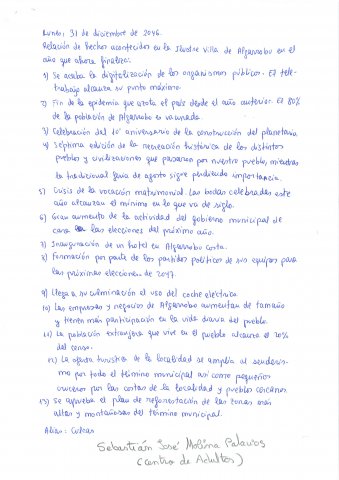 Lunes, 31 de diciembre de 2046.
Relación de hechos acontecidos en la Ilustre Villa de Algarrobo en el
año que ahora finaliza:
1) Se acaba la digitalización de los organismos públicos. El tele-
trabajo alcanza su punto máximo.
2) Fin de la epidemia que azota el país desde el año anterior. El 80%
de la población de Algarrobo es vacunada.
3) Celebración del 10º aniversario de la construcción del planetario
4) Séptima edición de la recreación histórica de los distintos
pueblos y civilizaciones que pasaron por nuestro pueblo, mientras
la tradicional feria de agosto sigue perdiendo importancia.
5) Crisis de la vocación matrimonial. Las bodas celebradas este
año alcanzan el mínimo en lo que va de siglo.
6) Gran aumento de la actividad del gobierno municipal de
cara a las elecciones del próximo año.
7) Inauguración de un hotel en Algarrobo costa.
8) Formación por parte de los partidos políticos de sus equipos para
las próximas elecciones de 2047.
9) Llega a su culminación el uso del coche eléctrico.
10) Las empresas y negocios de Algarrobo aumentan de tamaño
y tienen más participación en la vida diaria del pueblo.
11) La población extranjera que vive en el pueblo alcanza el 20%
del censo.
12) La oferta turística de la localidad se amplía al senderis-
mo por todo el término municipal así como pequeños
cruceros por las costas de la localidad y pueblos cercanos
13) Se aprueba el plan de reforestación de las zonas más
altas y montañosas del término municipal.
Alias:
Sebastián José Molina Palacios
(Centro de Adultos)